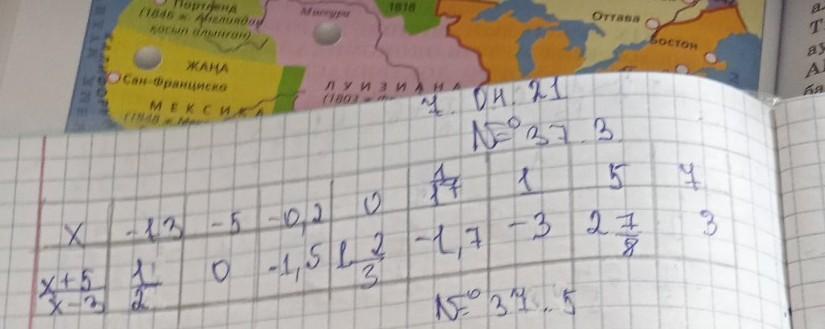 Портленд
(1846 ж. Англиядан
қосып алынған)
Миссури
1818
Оттава
Бостон
ЖАҢА
Сан-Франциско
МЕКСИКА
(1848 ж.
ЛУИЗИАНА
(1803 ж.
7. 0н. 21
№ 37.3
x -13 -5 -0,2 0 1/17 1 5 7
x+5/x-3 1/2 0 -1,5 1 2/3 -1,7 -3 2 7/8 3
№ 37.5